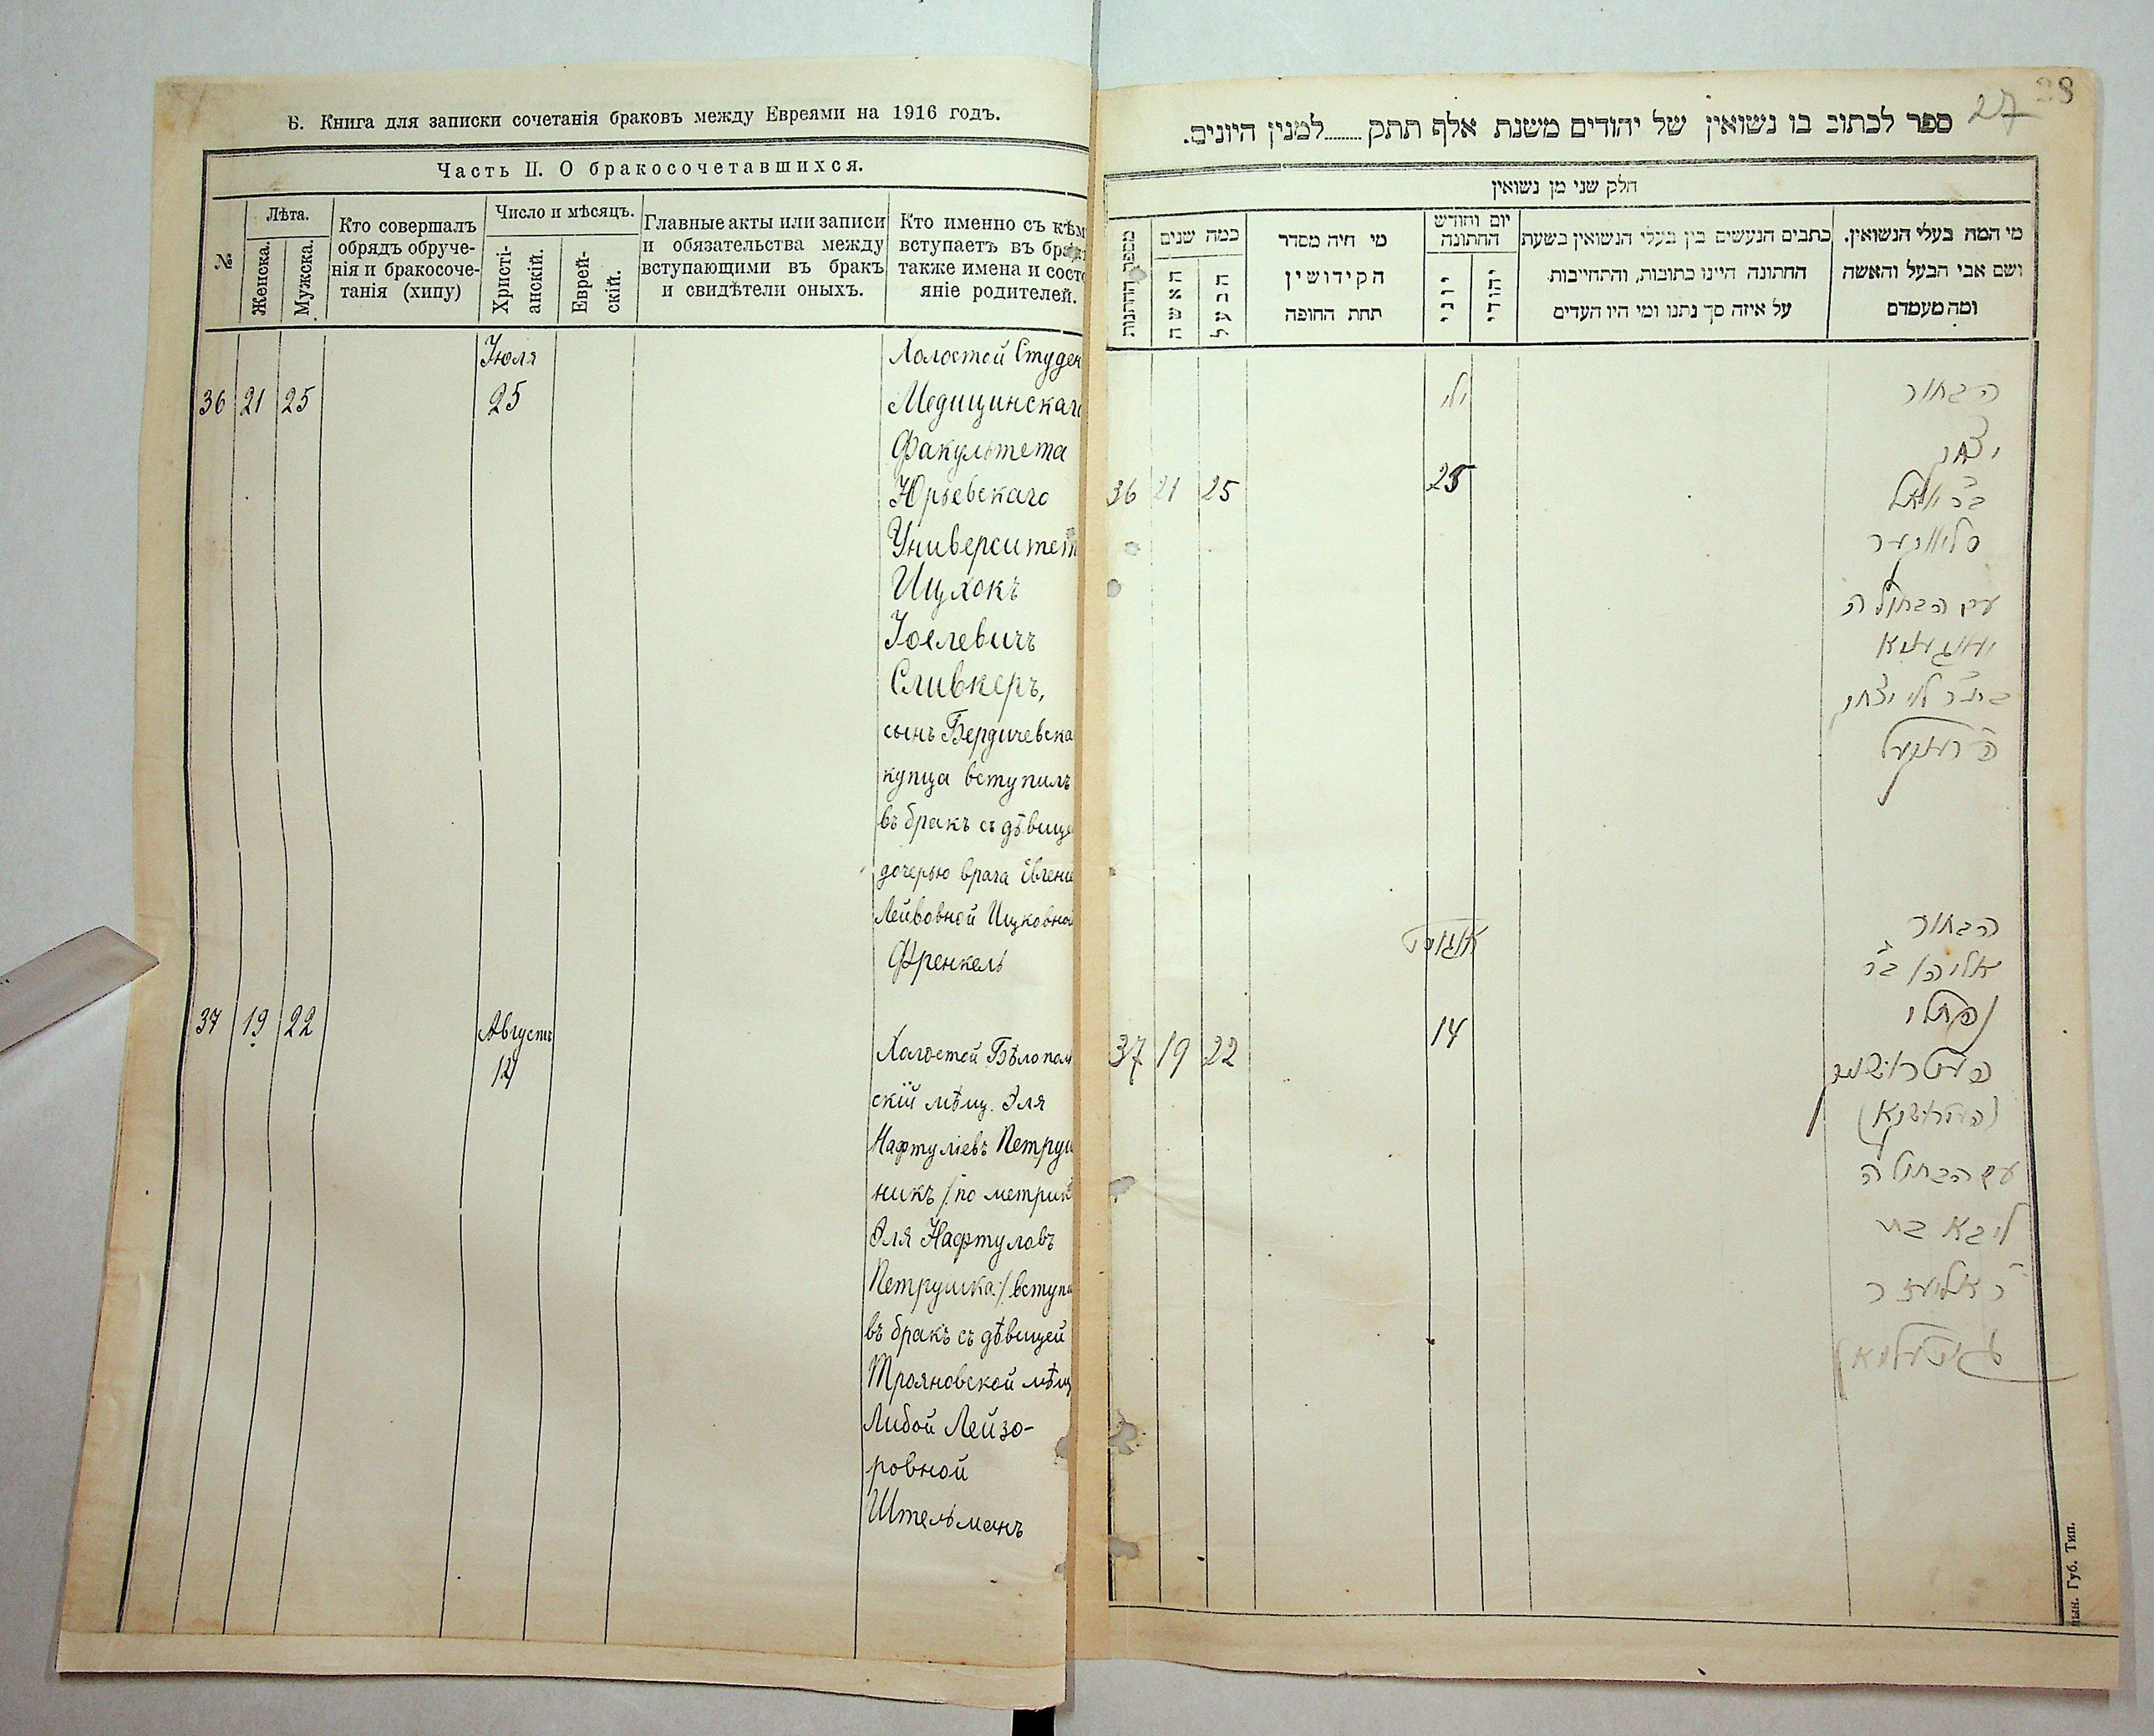 Б. Книга для записки сочетанія браковъ между Евреями на 1916 годъ.
Часть II. О бракосочетавшихся.
№
Лѣта.
Женска.
Мужска.
Кто совершалъ
обрядъ обруче-
нія и бракосоче-
танія (хипу)
Число и мѣсяцъ.
Христі-
анскій.
Еврей-
скій.
Главные акты или записи
и обязательства между
вступающими въ бракъ
и свидѣтели оныхъ.
Кто именно съ кѣм
вступаетъ въ брак
также имена и состо
яніе родителей.
Іюля
36 21 25 25
Холостой Студен
Медицинскаго
Факультета
Юрьевскаго
Университет
Ицхокъ
Іоелевичъ
Сливкеръ,
сынъ Бердичевска
купца вступилъ
въ бракъ съ дѣвице
дочерью врача Евгение
Лейвовной Ицковной
Френкель
37 19 22
Августъ
14
Холостой Бѣлопол
скій мѣщ. Эля
Нафтуліевъ Петруш
никъ /:по метрик
Эля Нафтуловъ
Петрушка:/ вступи
въ бракъ съ дѣвицей
Трояновской мѣщ
Либой Лейзо-
ровной
Штельманъ
27 28
ספר לכתוב בו נשואין של יהודים משנת אלף תתק........למנין היונים.
חלק שני מן נשואין
מי המה בעלי הנשואין.
ושם אבי הבעל והאשה
ומה מעמדם
כתבים הנעשים בין בעלי הנשואין בשעת
החתונה היינו כתובות, והתחייבות
על איזה סך נתנו ומי היו העדים
יום וחודש
החתונה
יוני
יהודי
מי היה מסדר
הקידושין
תחת החופה
כמה שנים
האשה
הבעל
מספר החתונות
יולי
36 21 25 25
הבחור
יצחק
ב"ר יואל
סליווקער
עם הבתולה
יעווגעניא
בת ר' לוי יצחק
פרענקעל
אוגוסט
37 19 22 14
הבחור
אליהו ב"ר
נפתלי
פעטרושניק
(פעטרושקא)
עם הבתולה
ליבא בת
ר' אליעזר
שטעלמאן
ын. Губ. Тип.